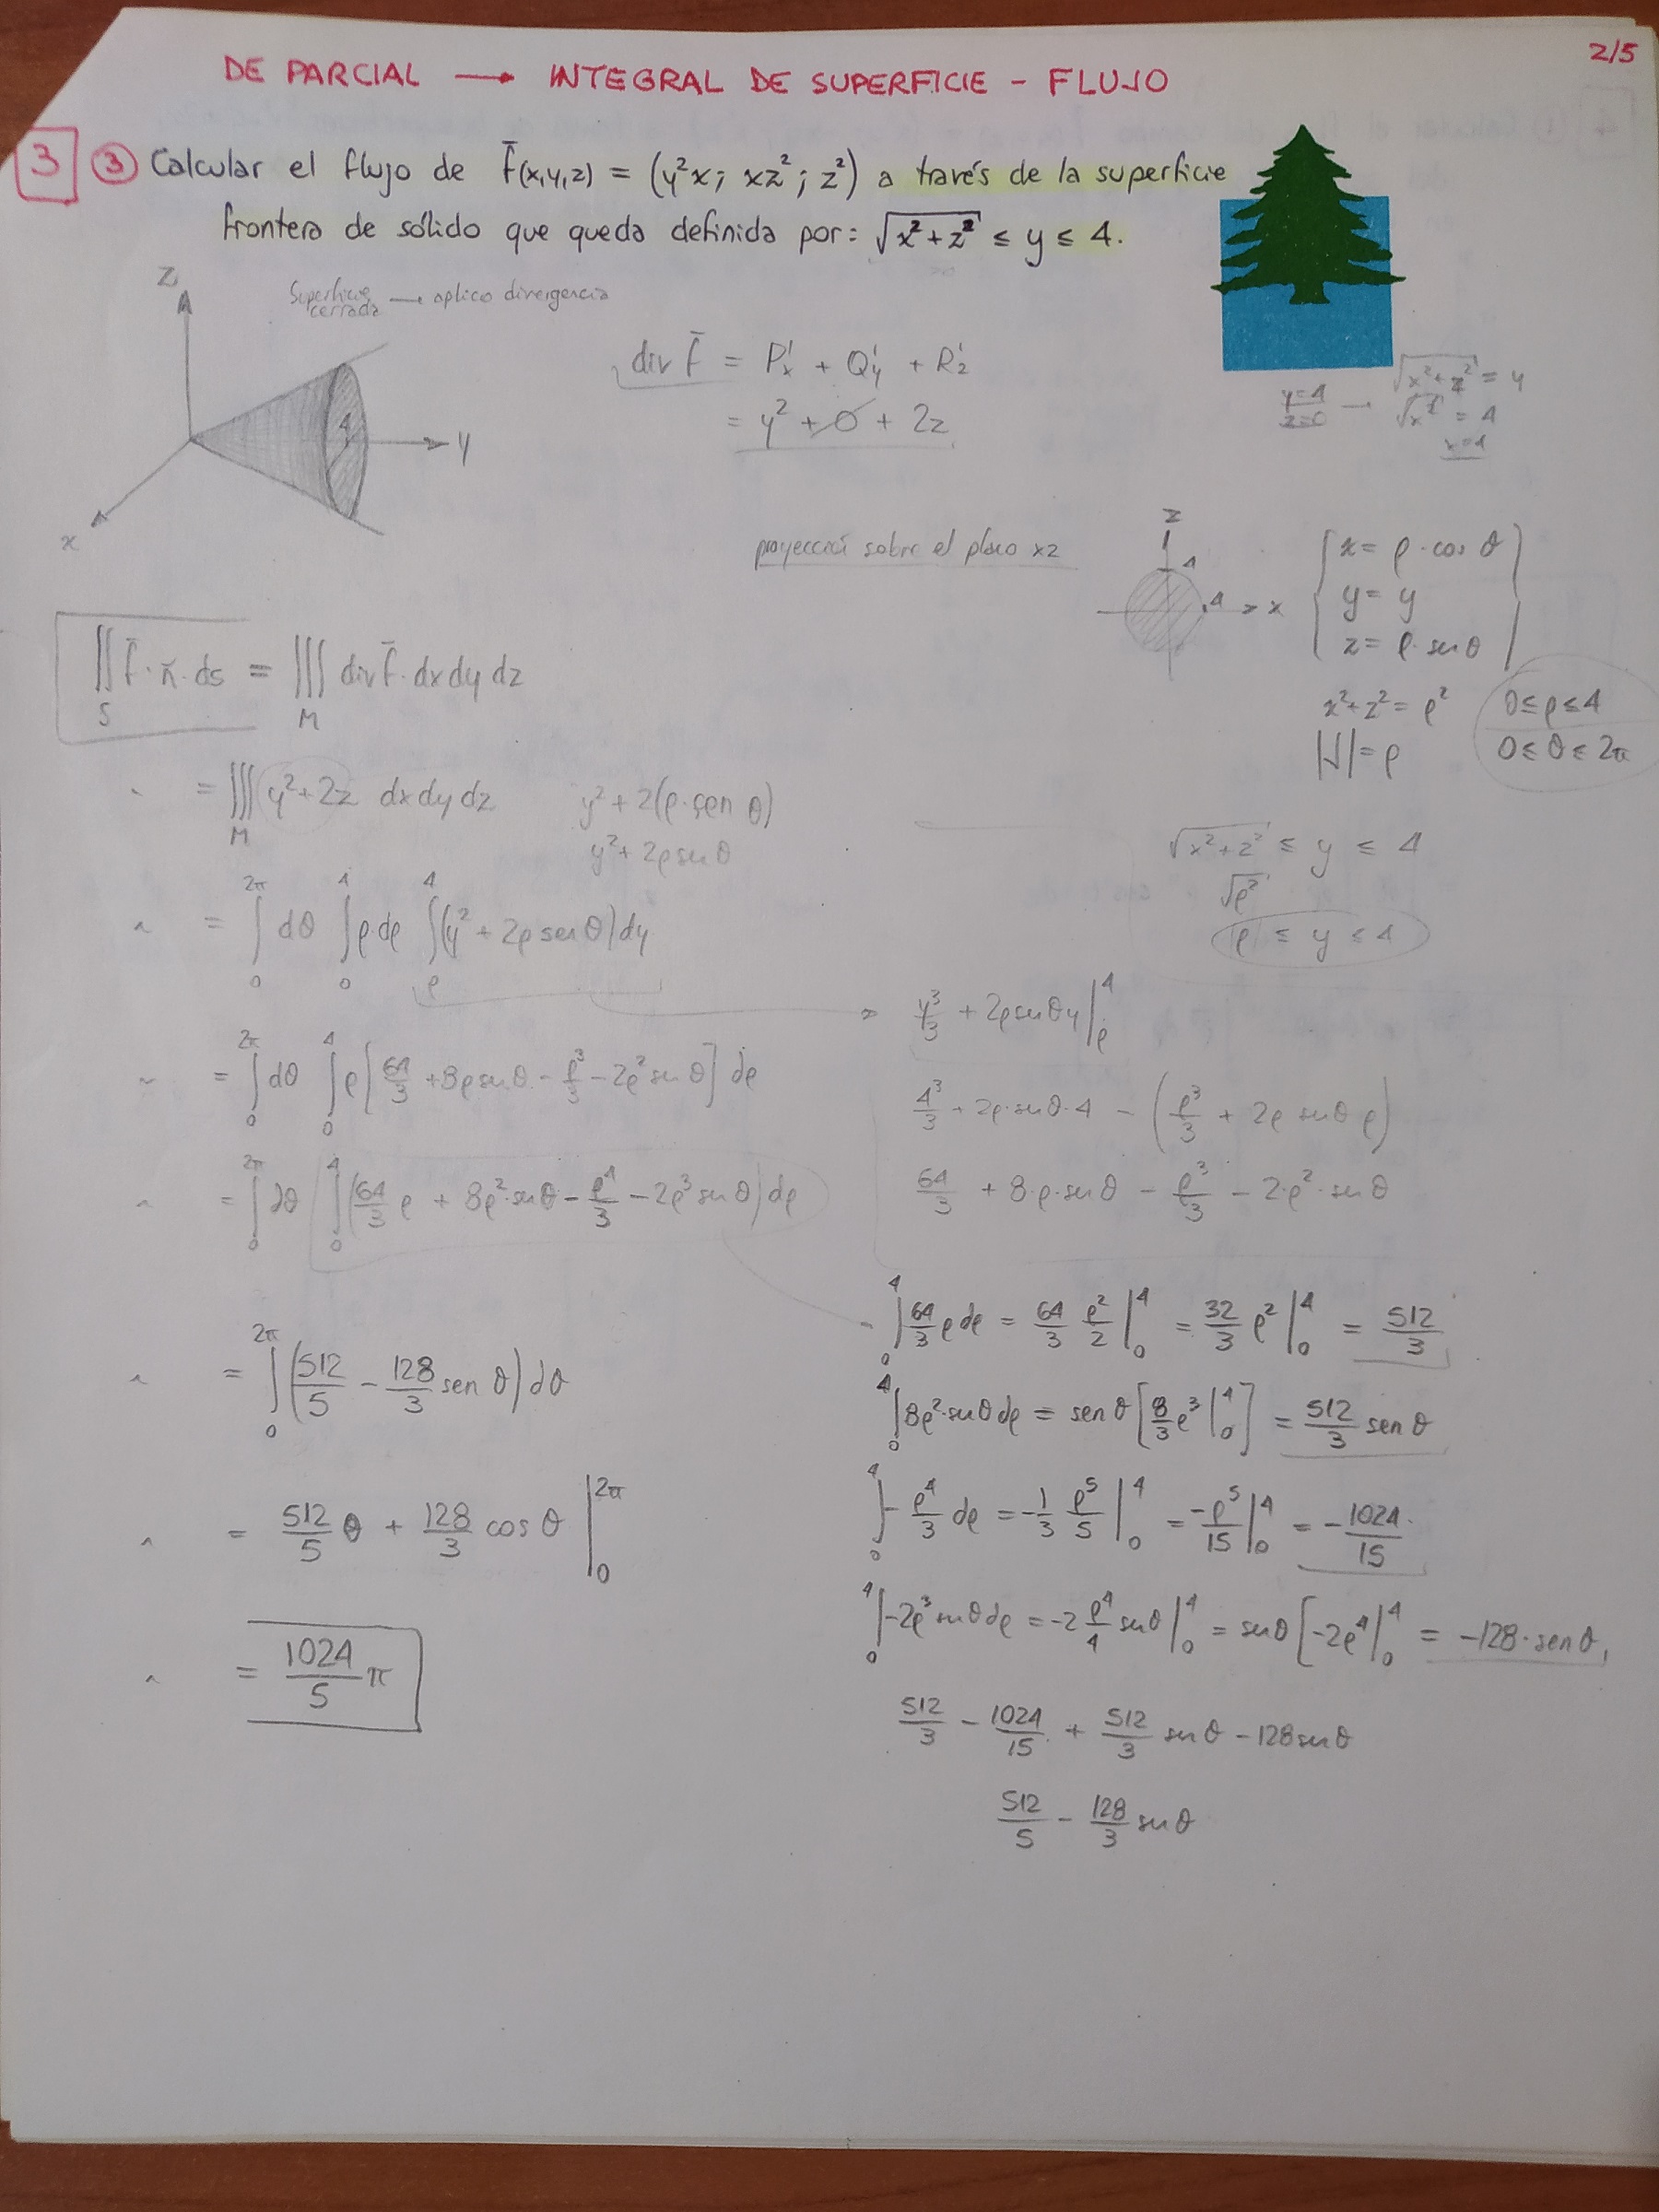 2/5
DE PARCIAL → INTEGRAL DE SUPERFICIE - FLUJO
3 ③ Calcular el flujo de F̄(x,y,z) = (y²x; xz²; z²) a través de la superficie
frontera de sólido que queda definida por: √(x²+z²) ≤ y ≤ 4.
Superficie cerrada → aplico divergencia
z
4
y
x
div f̄ = P'x + Q'y + R'z
= y² + 0 + 2z
y=4
z=0 → √(x²+z²) = y
√x² = 4
x=4
proyección sobre el plano xz
z
4
4 x
x = ρ·cos θ
y = y
z = ρ·sen θ
x²+z² = ρ²
|J| = ρ
0≤ρ≤4
0≤θ≤2π
∬S f̄·n̄·ds = ∭M div f̄·dx dy dz
= ∭M y²+2z dx dy dz
y² + 2(ρ·sen θ)
y² + 2ρ sen θ
√(x²+z²) ≤ y ≤ 4
√ρ²
ρ ≤ y ≤ 4
= ∫₀^2π dθ ∫₀^4 ρ·dρ ∫ρ^4 (y² + 2ρ sen θ) dy
= y³/3 + 2ρ sen θ y |ρ^4
4³/3 + 2ρ·sen θ·4 − (ρ³/3 + 2ρ sen θ ρ)
64/3 + 8·ρ·sen θ − ρ³/3 − 2·ρ²·sen θ
= ∫₀^2π dθ ∫₀^4 ρ[64/3 + 8ρ sen θ − ρ³/3 − 2ρ² sen θ] dρ
= ∫₀^2π dθ ∫₀^4 (64/3 ρ + 8ρ²·sen θ − ρ⁴/3 − 2ρ³ sen θ) dρ
∫₀^4 64/3 ρ dρ = 64/3 ρ²/2 |₀^4 = 32/3 ρ² |₀^4 = 512/3
∫₀^4 8ρ²·sen θ dρ = sen θ [8/3 ρ³ |₀^4] = 512/3 sen θ
∫₀^4 −ρ⁴/3 dρ = −1/3 ρ⁵/5 |₀^4 = −ρ⁵/15 |₀^4 = −1024/15
∫₀^4 −2ρ³ sen θ dρ = −2 ρ⁴/4 sen θ |₀^4 = sen θ [−2ρ⁴ |₀^4 = −128·sen θ
512/3 − 1024/15 + 512/3 sen θ − 128 sen θ
512/5 − 128/3 sen θ
= ∫₀^2π (512/5 − 128/3 sen θ) dθ
= 512/5 θ + 128/3 cos θ |₀^2π
= 1024/5 π